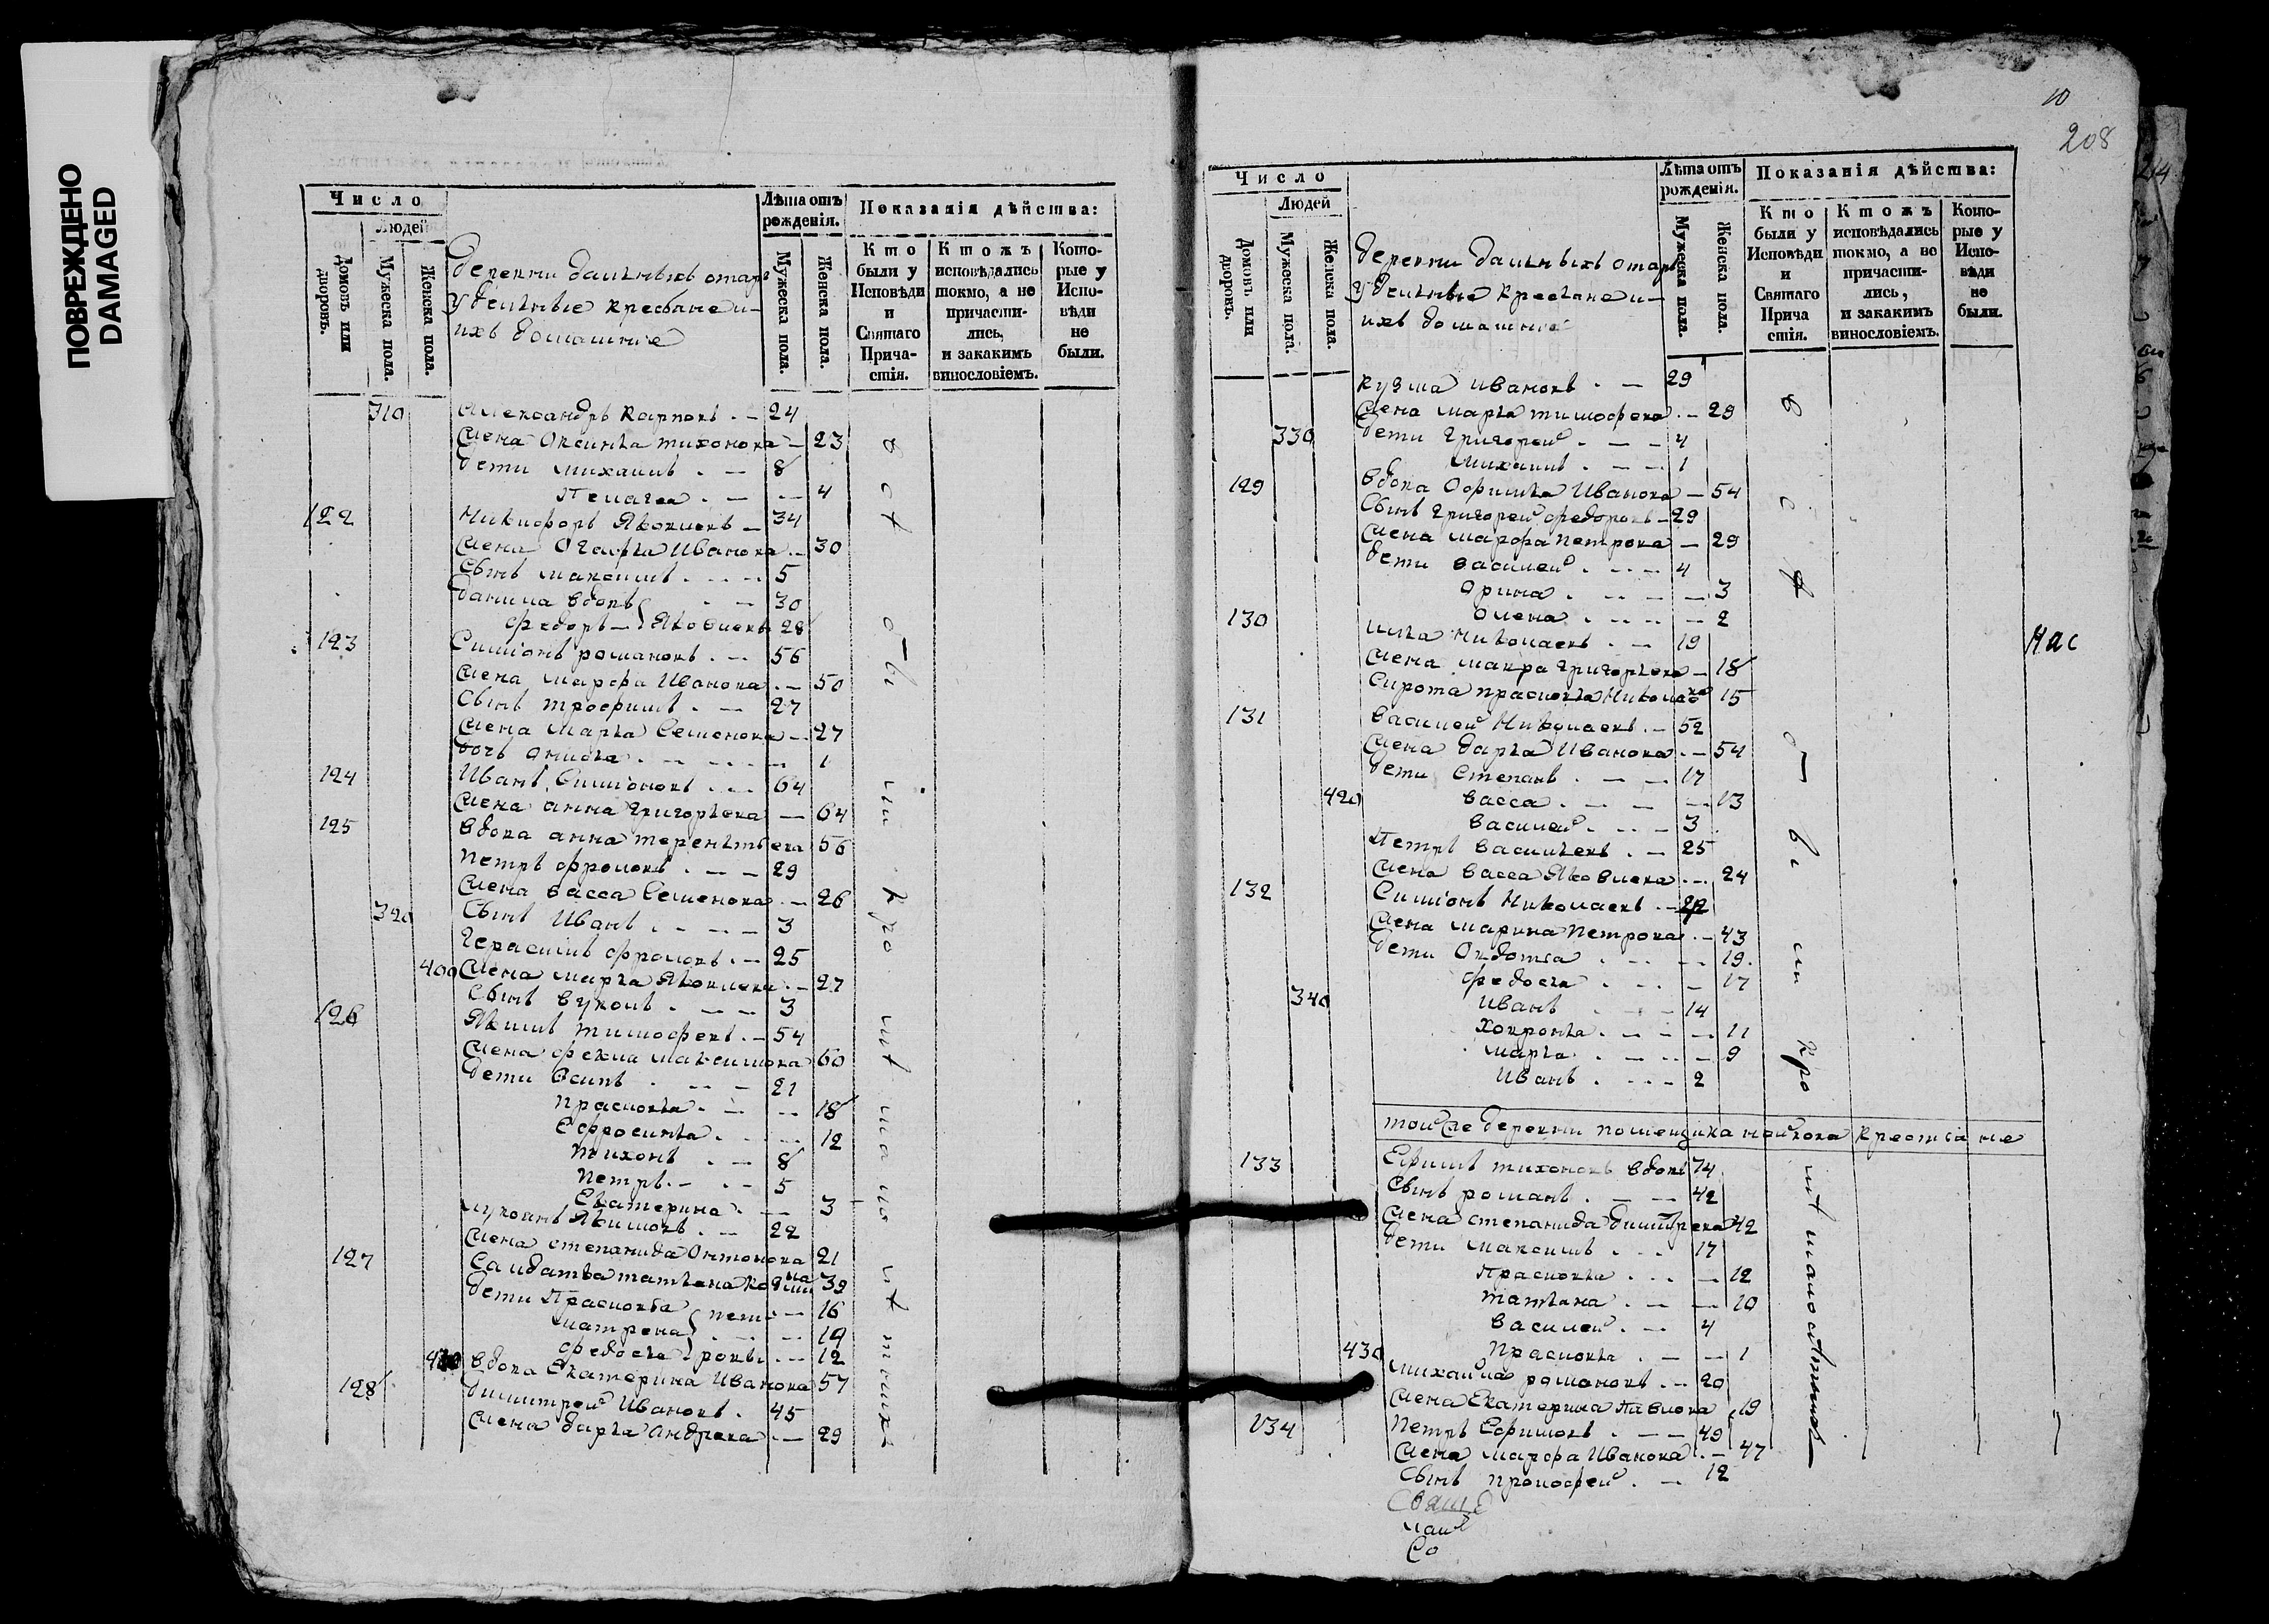 ПОВРЕЖДЕНО
DAMAGED
Число
Людей
Домовъ или дворовъ.
Мужеска пола.
Женска пола.
деревни дальныхъ отаръ
удельные крестьане и
ихъ домашние
Лѣта отъ рожденія.
Мужеска пола.
Женска пола.
Показанія дѣйства:
Кто были у Исповѣди и Святаго Причастія.
Ктожъ исповѣдались токмо, а не причастились, и закакимъ винословіемъ.
Которые у Исповѣди не были.
310 Александръ Карповъ 24
Жена Оксинья тихонова 23
дети михаилъ 8
Пелагея 4
122 Никифоръ Яковлевъ 34
Жена Огафья Иванова 30
Сынъ максимъ 5
данила вдовъ 30
федоръ Яковлевы 28
123 Симіонъ романовъ 56
Жена марфа Иванова 50
Сынъ трофимъ 27
Жена марья Семенова 27
дочь онисья 1
124 Иванъ Симіоновъ 64
Жена анна григорьева 64
125 вдова анна терентьева 56
Петръ фроловъ 29
Жена васса Семенова 26
320 Сынъ Иванъ 3
Герасимъ фроловъ 25
400 Жена марья Яковлева 27
Сынъ вуколъ 3
126 Якимъ тимофевъ 54
Жена фекла максимова 60
дети Осипъ 21
Прасковья 18
Ефросинья 12
тихонъ 8
Петръ 5
Екатерина 3
лукоянъ Якимовъ 22
Жена степанида Онтонова 21
127 Салдатка татьяна козмина 39
дети Прасковья 16
матрена петровы 14
федосья 12
410 вдова Екатерина Иванова 57
128 димитрей Ивановъ 45
Жена дарья андрева 29
10
208
Число
Людей
Домовъ или дворовъ.
Мужеска пола.
Женска пола.
деревни дальныхъ отаръ
удельные крестьане и
ихъ домашние
Лѣта отъ рожденія.
Мужеска пола.
Женска пола.
Показанія дѣйства:
Кто были у Исповѣди и Святаго Причастія.
Ктожъ исповѣдались токмо, а не причастились, и закакимъ винословіемъ.
Которые у Исповѣди не были.
кузма ивановъ 29
Жена марья тимофева 29
330 дети григорей 4
михаилъ 1
129 вдова Офимья Иванова 54
Сынъ григорей федоровъ 29
Жена марфа петрова 29
дети василей 4
орина 3
олена 2
130 илья Николаевъ 19
Жена мавра григорьева 18
Сирота прасковья Николаева 15
131 василей Николаевъ 52
Жена дарья Иванова 54
дети степанъ 17
420 васса 13
василей 3
Петръ васильевъ 25
Жена васса Яковлева 24
132 Симіонъ Николаевъ 42
Жена марина Петрова 43
дети Овдотья 19
федосья 17
340 Иванъ 14
ховронья 11
марья 9
Иванъ 2
Нас
той же деревни помещика крестьане
133 Ефимъ тихоновъ вдовъ 74
Сынъ романъ 42
Жена степанида димитрева 42
дети максимъ 17
Прасковья 12
татьяна 10
василей 4
430 Прасковья 1
михаила романовъ 20
Жена Екатерина Павлова 19
134 Петръ Ефимовъ 49
Жена марфа Иванова 47
Сынъ прокофей 12
Свящ
Со